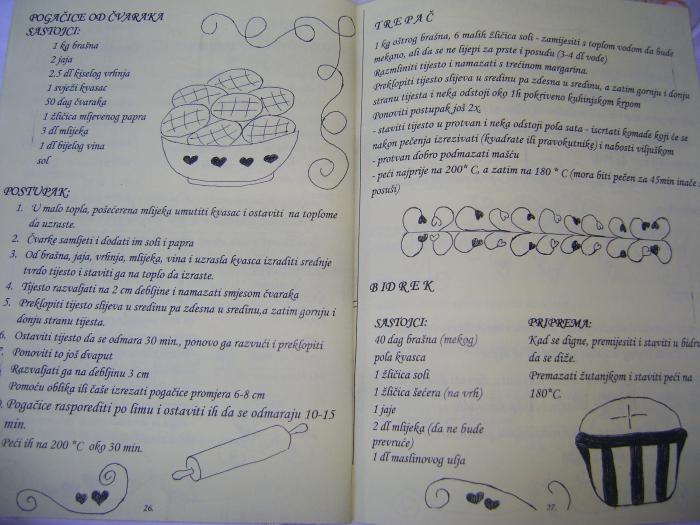 POGAČICE OD ČVARAKA
SASTOJCI:
1 kg brašna
2 jaja
2.5 dl kiselog vrhnja
1 svježi kvasac
50 dag čvaraka
1 žličica mljevenog papra
3 dl mlijeka
1 dl bijelog vina
sol
POSTUPAK:
1. U malo topla, pošećerena mlijeka umutiti kvasac i ostaviti na toplome
da uzraste.
2. Čvarke samljeti i dodati im soli i papra
3. Od brašna, jaja, vrhnja, mlijeka, vina i uzrasla kvasca izraditi srednje
tvrdo tijesto i staviti ga na toplo da izraste.
4. Tijesto razvaljati na 2 cm debljine i namazati smjesom čvaraka
5. Preklopiti tijesto slijeva u sredinu pa zdesna u sredinu,a zatim gornju i
donju stranu tijesta.
6. Ostaviti tijesto da se odmara 30 min., ponovo ga razvući i preklopiti
Ponoviti to još dvaput
Razvaljati ga na debljinu 3 cm
Pomoću oblika ili čaše izrezati pogačice promjera 6-8 cm
Pogačice rasporediti po limu i ostaviti ih da se odmaraju 10-15
min.
Peći ih na 200 °C oko 30 min.
26.
TREPAČ
1 kg oštrog brašna, 6 malih žličica soli - zamijesiti s toplom vodom da bude
mekano, ali da se ne lijepi za prste i posudu (3-4 dl vode)
Razmliniti tijesto i namazati s trećinom margarina.
Preklopiti tijesto slijeva u sredinu pa zdesna u sredinu, a zatim gornju i donju
stranu tijesta i neka odstoji oko 1h pokriveno kuhinjskom krpom
Ponoviti postupak još 2x.
- staviti tijesto u protvan i neka odstoji pola sata - iscrtati komade koji će se
nakon pečenja izrezivati (kvadrate ili pravokutnike) i nabosti viljuškom
- protvan dobro podmazati mašću
- peći najprije na 200° C, a zatim na 180 ° C (mora biti pečen za 45min inače se
posuši)
BIDREK
SASTOJCI:
40 dag brašna (mekog)
pola kvasca
1 žličica soli
1 žličica šećera (na vrh)
1 jaje
2 dl mlijeka (da ne bude
prevruće)
1 dl maslinovog ulja
PRIPREMA:
Kad se digne, premijesiti i staviti u bidru
da se diže.
Premazati žutanjkom i staviti peći na
180°C.
27.